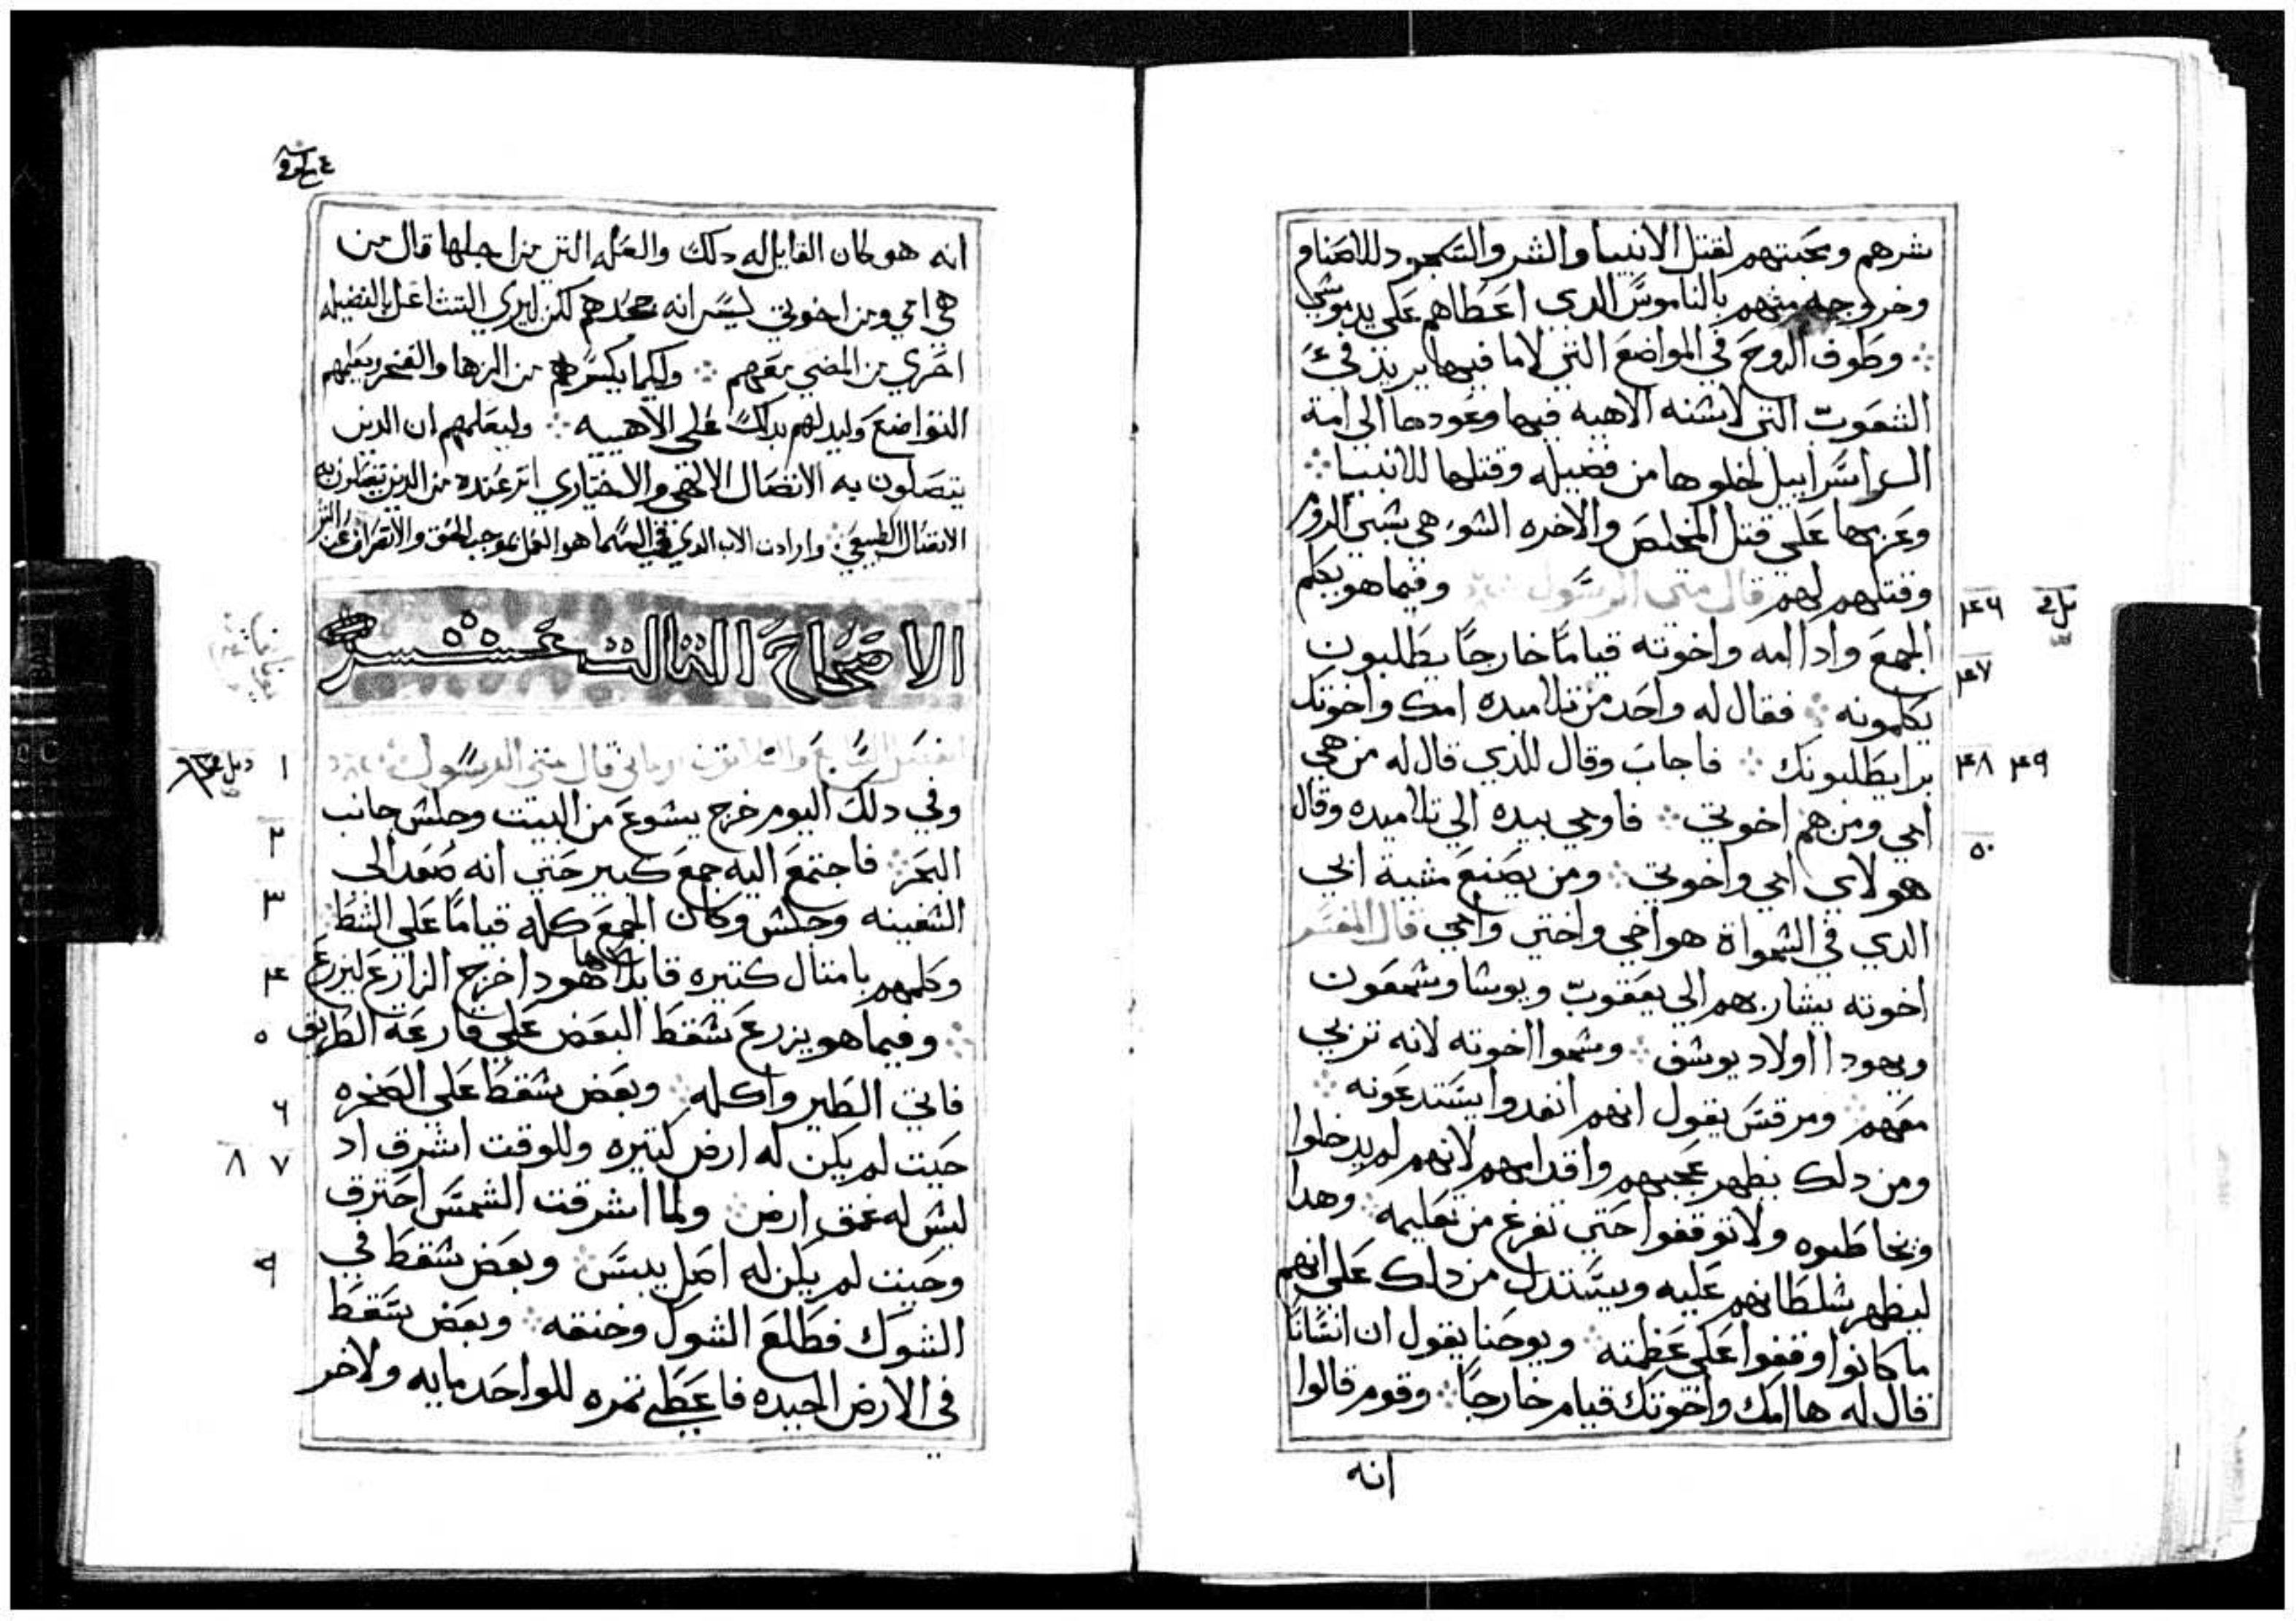 شرهم ومحبتهم لقتل الانبيا والشر والسجود للاصنام
وخروجه منهم بالناموس الدي اعطاهم على يد موسى
وطوف الروح في المواضع التي لاما فيها يريد في
الشعوب التي لا الاهيه فيها وعودها الى امة
اسراييل لخلوها من فضيله وقتلها للانبيا
وعزمها على قتل المخلص والاخره الشو هي بسبي الروم
وقتلهم لهم قال متى الرسول وفيما هو يكلم
٤٦
الجمع وادا امه واخوته قياما خارجا يطلبون
٤٧
يكلمونه فقال له واحد من تلاميده امك واخوتك
برا يطلبونك فاجاب وقال للدي قال له من هي
٤٨ ٤٩
امي ومن هم اخوتي فاومى بيده الي تلاميده وقال
٥٠
هولاي امي واخوتي ومن يصنع مشية ابي
الدي في السمواة هو اخي واختي وامي قال المفسر
اخوته يشار بهم الى يعقوب ويوسا وشمعون
ويهودا اولاد يوسف وسموا اخوته لانه تربي
معهم ومرقس يقول انهم انفدوا يستدعونه
ومن دلك يظهر عجبهم واقدامهم لانهم لم يدخلوا
ويخاطبوه ولا توقفوا حتي تفرغ من تعليمه وهدا
ليظهر سلطانهم عليه ويستدل من دلك على انهم
ما كانوا وقفوا على عظمته ويوحنا يقول ان انسانا
قال له ها امك واخوتك قيام خارجا وقوم قالوا
انه
انه هو كان القايل له دلك والعله التي من اجلها قال من
هي امي ومن اخوتي ليس انه جحدهم لكن ليري التشاغل بالفضيله
احري من المضي معهم ولكيما يكسرهم من الزها والفخر ويعلمهم
التواضع وليدلهم بدلك على الاهيته وليعلمهم ان الدين
يتصلون به الاتصال الالاهي والاختياري اثر عنده من الدين يتصلون به
الاتصال الطبيعي وارادت الاب الدي في السما هو العمل بموجب الحق والانصراف عن الشر
الاصحاح التالت عشر
الفصل السابع والثلاثون قال متى الرسول
١
وفي دلك اليوم خرج يسوع من البيت وجلس جانب
٢
البحر فاجتمع اليه جمع كبير حتي انه صعد الى
٣
السفينه وجلس وكان الجمع كله قياما على الشط
٤
وكلمهم بامتال كتيره قايلا ها هودا خرج الزارع ليزرع
٥
وفيما هو يزرع سقط البعض على قارعة الطريق
٦
فاتي الطير واكله وبعض سقط على الصخره
٧ ٨
حيت لم يكن له ارض كتيره وللوقت اشرق اد
ليس له عمق ارض ولما اشرقت الشمس احترق
٩
وحيت لم يكن له اصل يبس وبعض سقط في
الشوك فطلع الشوك وخنقه وبعض سقط
في الارض الجيده فاعطى تمره للواحد مايه ولاخر